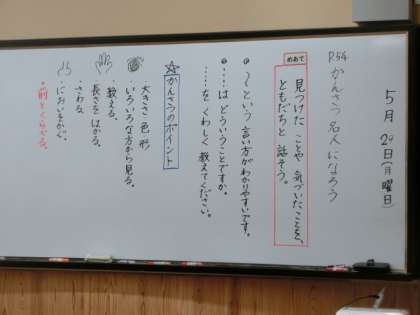 5月20日(月曜日)
P54 かんさつ名人になろう
めあて
見つけたことや 気づいたことを、
ともだちと 話そう。
・〜という 言い方が わかりやすいです。
・……は どういうことですか。
・……を くわしく 教えてください。
かんさつのポイント
大きさ 色 形
・いろいろな方から見る。
・数える。
・長さを はかる。
・さわる。
・においをかぐ。
・前とくらべる。